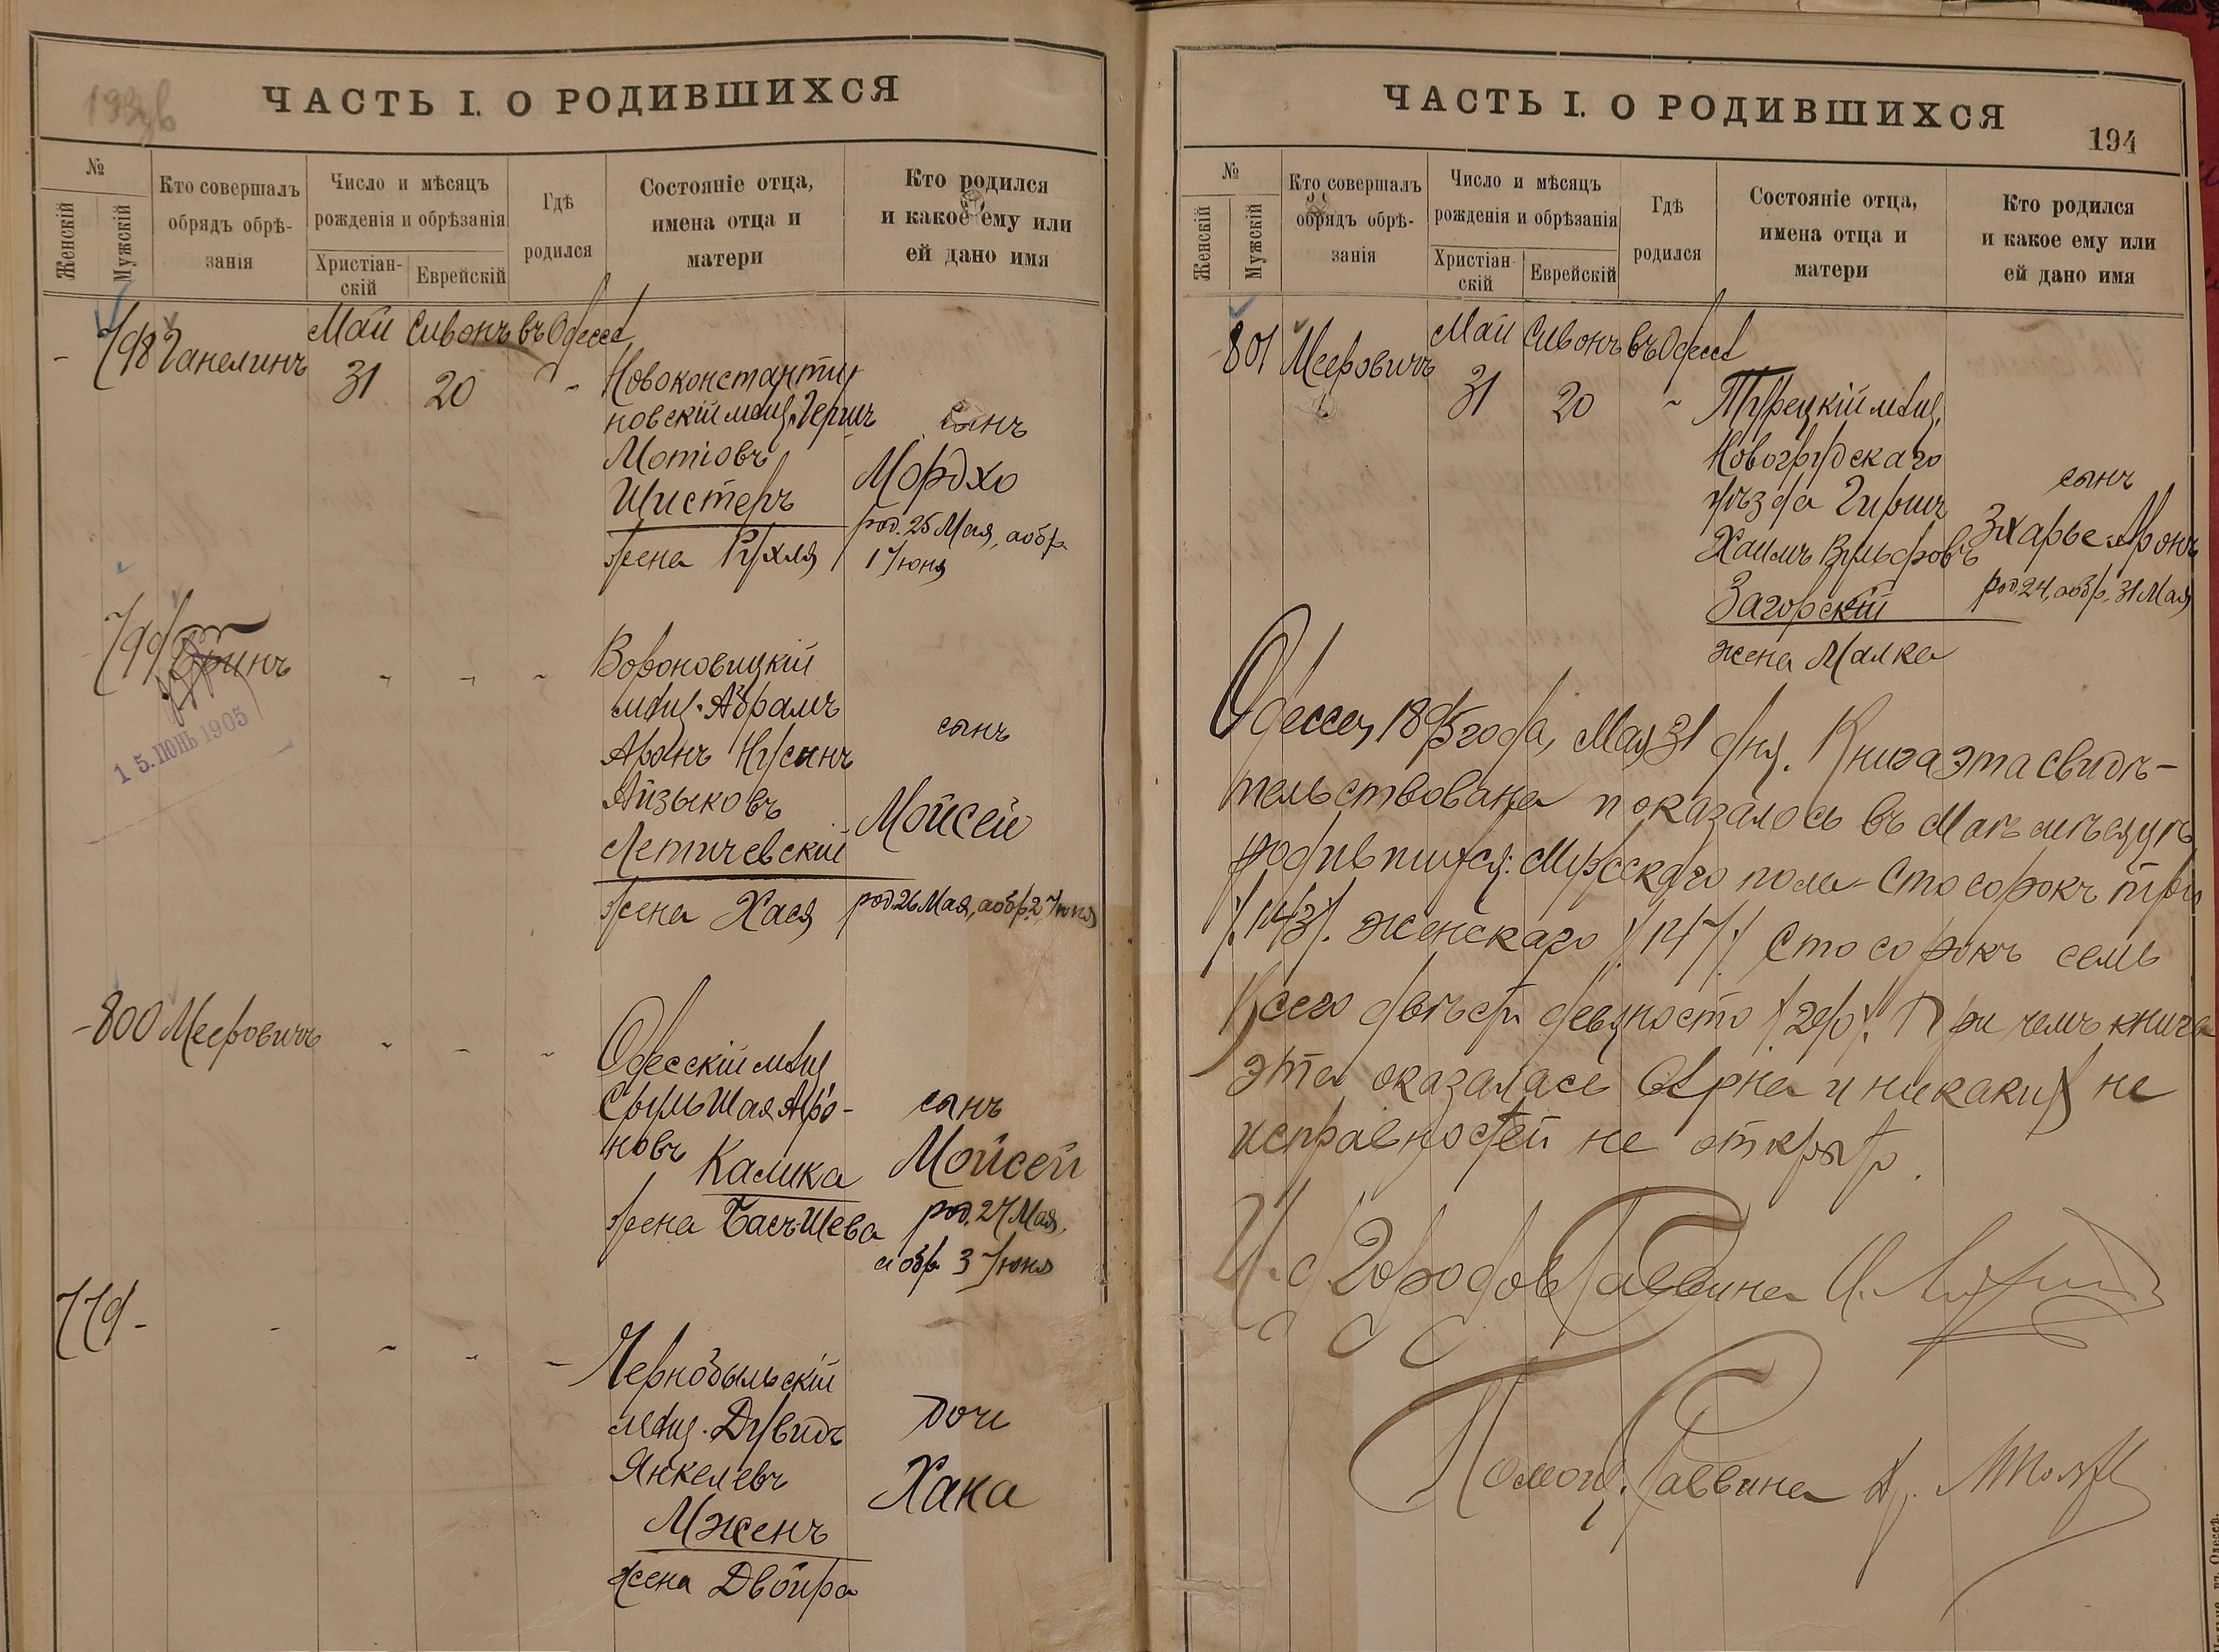 ЧАСТЬ I. О РОДИВШИХСЯ
№
Женскій
Мужскій
Кто совершалъ
обрядъ обрѣ-
занія
Число и мѣсяцъ
рожденія и обрѣзанія
Христіан-
скій
Еврейскій
Гдѣ
родился
Состояніе отца,
имена отца и
матери
Кто родился
и какое ему или
ей дано имя
- 798 Ганелинъ
Май Сивонъ въ Одессѣ
31 20 -
Новоконстанти
новскій мѣщ. Герш
Мотіовъ
Шистеръ
жена Рухля
сынъ
Мордхо
род. 25 Мая, а обр.
1 Іюня
799 Гринъ
15. ІЮНЬ 1905
Вороновицкій
мѣщ. Абрамъ
Аронъ Нусинъ
Айзыковъ
Летичевскій
жена Хася
сынъ
Мойсей
род. 26 Мая, а обр. 2 Іюня
- 800 Мееровичъ
Одесскій мѣщ
Сруль Шая Аро-
новъ
Калика
жена Басъ-Шева
сынъ
Мойсей
род. 27 Мая,
а обр. 3 Іюня
779 -
Чернобыльскій
мѣщ. Дувидъ
Янкелевъ
Мженъ
жена Двойра
дочь
Хана
ЧАСТЬ I. О РОДИВШИХСЯ
194
№
Женскій
Мужскій
Кто совершалъ
обрядъ обрѣ-
занія
Число и мѣсяцъ
рожденія и обрѣзанія
Христіан-
скій
Еврейскій
Гдѣ
родился
Состояніе отца,
имена отца и
матери
Кто родился
и какое ему или
ей дано имя
- 801 Мееровичъ
Май Сивонъ въ Одессѣ
31 20 -
Турецкій мѣщ.
Новогрудскаго
уѣзда Гирш
Хаимъ Вульфовъ
Загорскій
жена Малка
сынъ
Зхарье Аронъ
род. 24, а обр. 31 Мая
Одесса, 1895 года, Мая 31 дня. Книга эта свидѣ-
тельствована показалось въ Маѣ мѣсяцѣ
родившихся: Мужескаго пола - Сто сорокъ три
/143/. женскаго /147/ Сто сорокъ семь
Всего двѣсти девяносто /290/. При чемъ книга
эта оказалась вѣрна и никакихъ не
исправностей не открыто.
И. д. Городов. Раввина
Помощ. Раввина
въ Одессѣ.